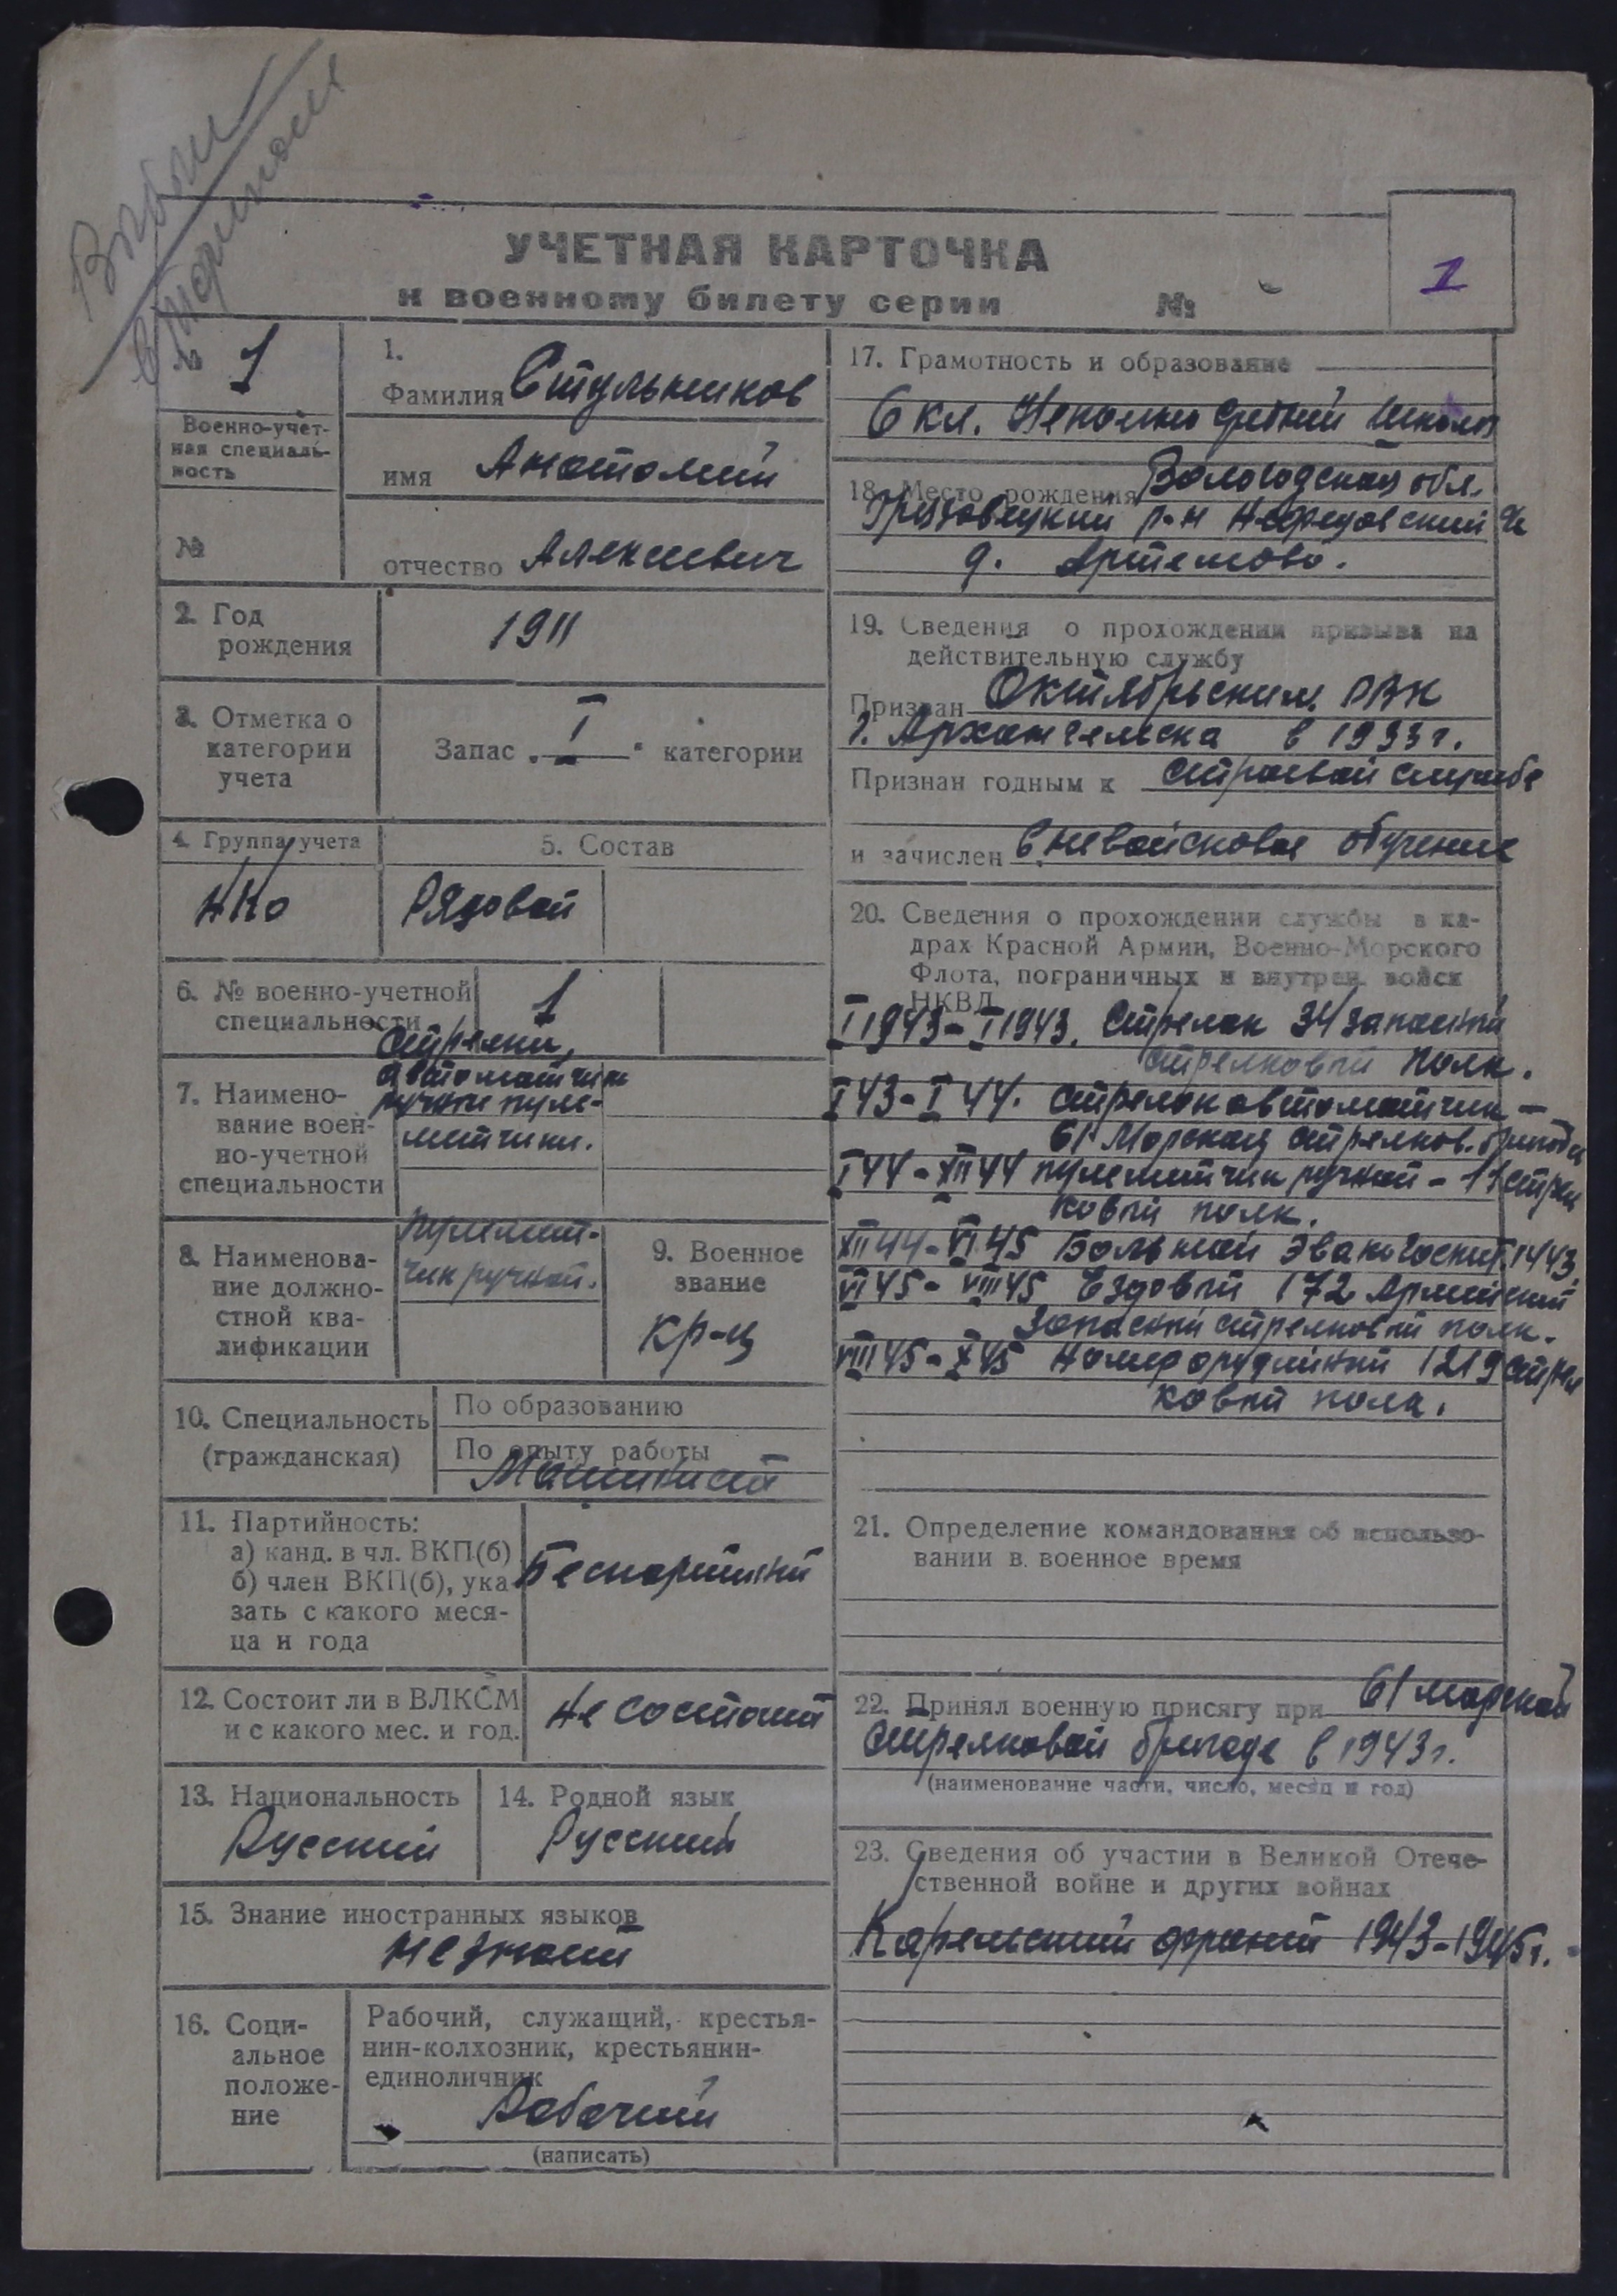 Выбыл
УЧЕТНАЯ КАРТОЧКА
к военному билету серии №
1
№ 1
Военно-учёт-
ная специаль-
ность
№
1.
Фамилия Стульников
имя Анатолий
отчество Алексеевич
2. Год
рождения
1911
3. Отметка о
категории
учета
Запас „I“ категории
4. Группа учета
НКО
5. Состав
Рядовой
6. № военно-учетной
специальности
1
7. Наимено-
вание воен-
но-учетной
специальности
Стрелки,
автоматчики
ручные пуле-
метчики.
8. Наименова-
ние должно-
стной ква-
лификации
пулемет-
чик ручной.
9. Военное
звание
кр-ц
10. Специальность
(гражданская)
По образованию
По опыту работы
Машинист
11. Партийность:
а) канд. в чл. ВКП(б)
б) член ВКП(б), ука-
зать с какого меся-
ца и года
Беспартийный
12. Состоит ли в ВЛКСМ
и с какого мес. и год.
Не состоит
13. Национальность
Русский
14. Родной язык
Русский
15. Знание иностранных языков
не знает
16. Соци-
альное
положе-
ние
Рабочий, служащий, крестья-
нин-колхозник, крестьянин-
единоличник
Рабочий
(написать)
17. Грамотность и образование
6 кл. Неполно средней школы
18. Место рождения Вологодская обл.
Грязовецкий р-н Нефедовский
д. Артемово.
19. Сведения о прохождении призыва на
действительную службу
Призван Октябрьским РВК
г. Архангельска в 1933 г.
Признан годным к строевой службе
и зачислен в невойсковое обучение
20. Сведения о прохождении службы в ка-
драх Красной Армии, Военно-Морского
Флота, пограничных и внутрен. войск
НКВД
I 1943 - I 1943. Стрелок 34 запасный
стрелковый полк.
I 43 - I 44. стрелок автоматчик -
61 Морская стрелков. бригада
I 44 - XII 44 пулеметчик ручной - 11 стрел
ковый полк.
XII 44 - VI 45 Больной Эвакогоспит. 1443.
VI 45 - VIII 45 Ездовый 172 Армейский
Запасный стрелковый полк.
VIII 45 - X 45 Номер орудийный 1219 стрел
ковый полк.
21. Определение командования об использо-
вании в военное время
22. Принял военную присягу при 61 морской
стрелковой бригаде в 1943 г.
(наименование части, число, месяц и год)
23. Сведения об участии в Великой Отече-
ственной войне и других войнах
Карельский фронт 1943-1945 г.